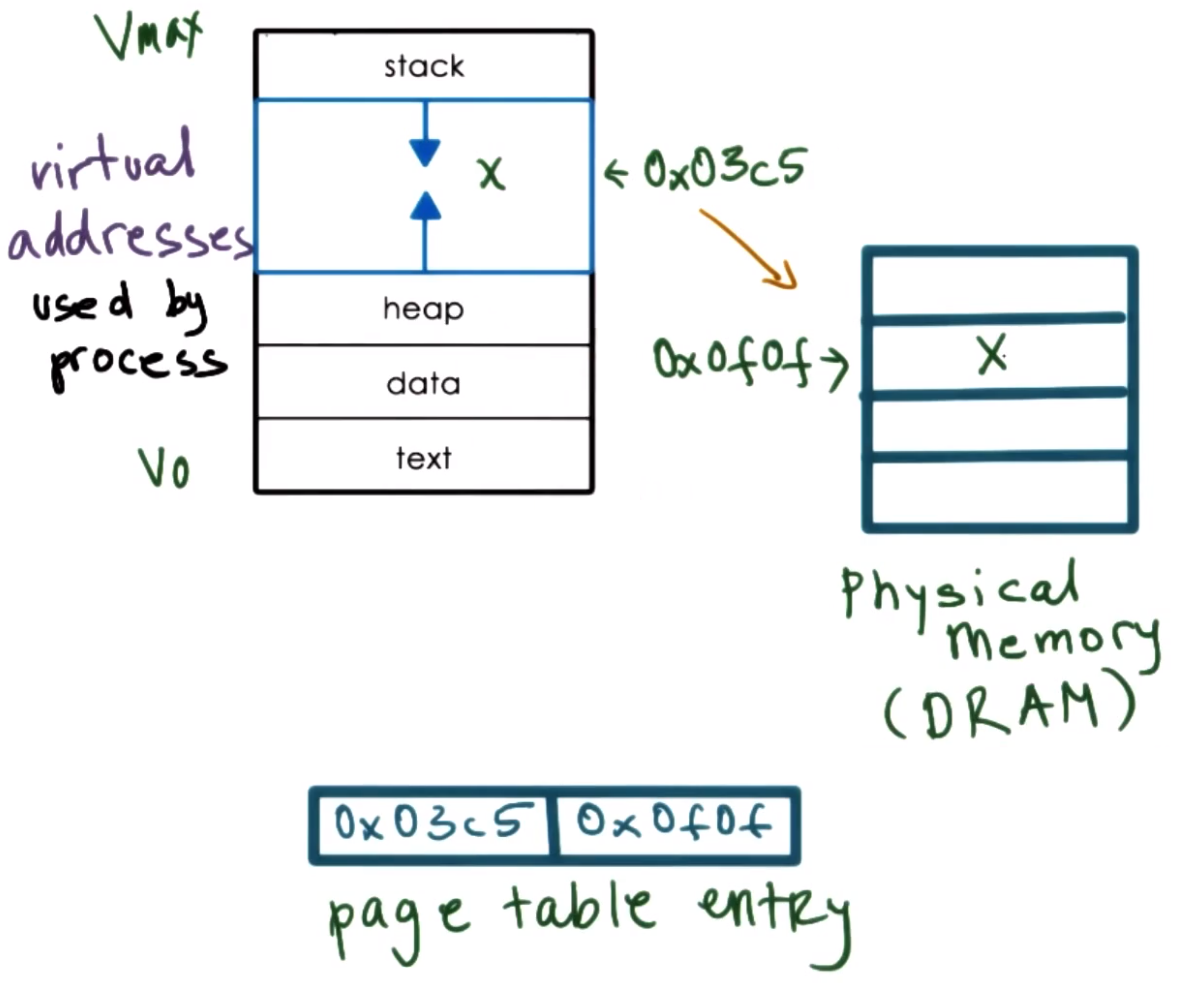 Vmax
stack
virtual
addresses
used by
process
X
← 0x03c5
heap
data
text
V0
0x0f0f →
X
Physical
Memory
(DRAM)
0x03c5 0x0f0f
page table entry